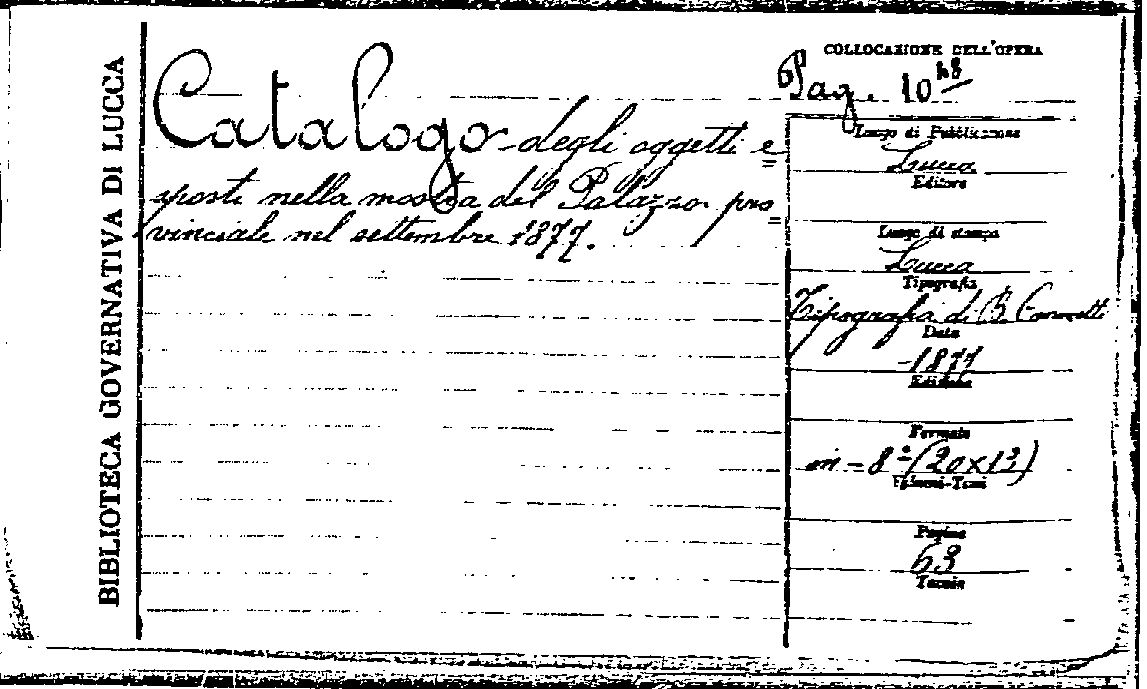 BIBLIOTECA GOVERNATIVA DI LUCCA
Catalogo degli oggetti e=
sposti nella mostra del Palazzo pro=
vinciale nel settembre 1877.
COLLOCAZIONE DELL'OPERA
Pag. 10
Luogo di Pubblicazione
Lucca
Editore
Luogo di stampa
Lucca
Tipografia
Tipografia di B. Canovetti
Data
1877
Edizione
Formato
in-8°(20x13)
Volumi-Tomi
Pagine
63